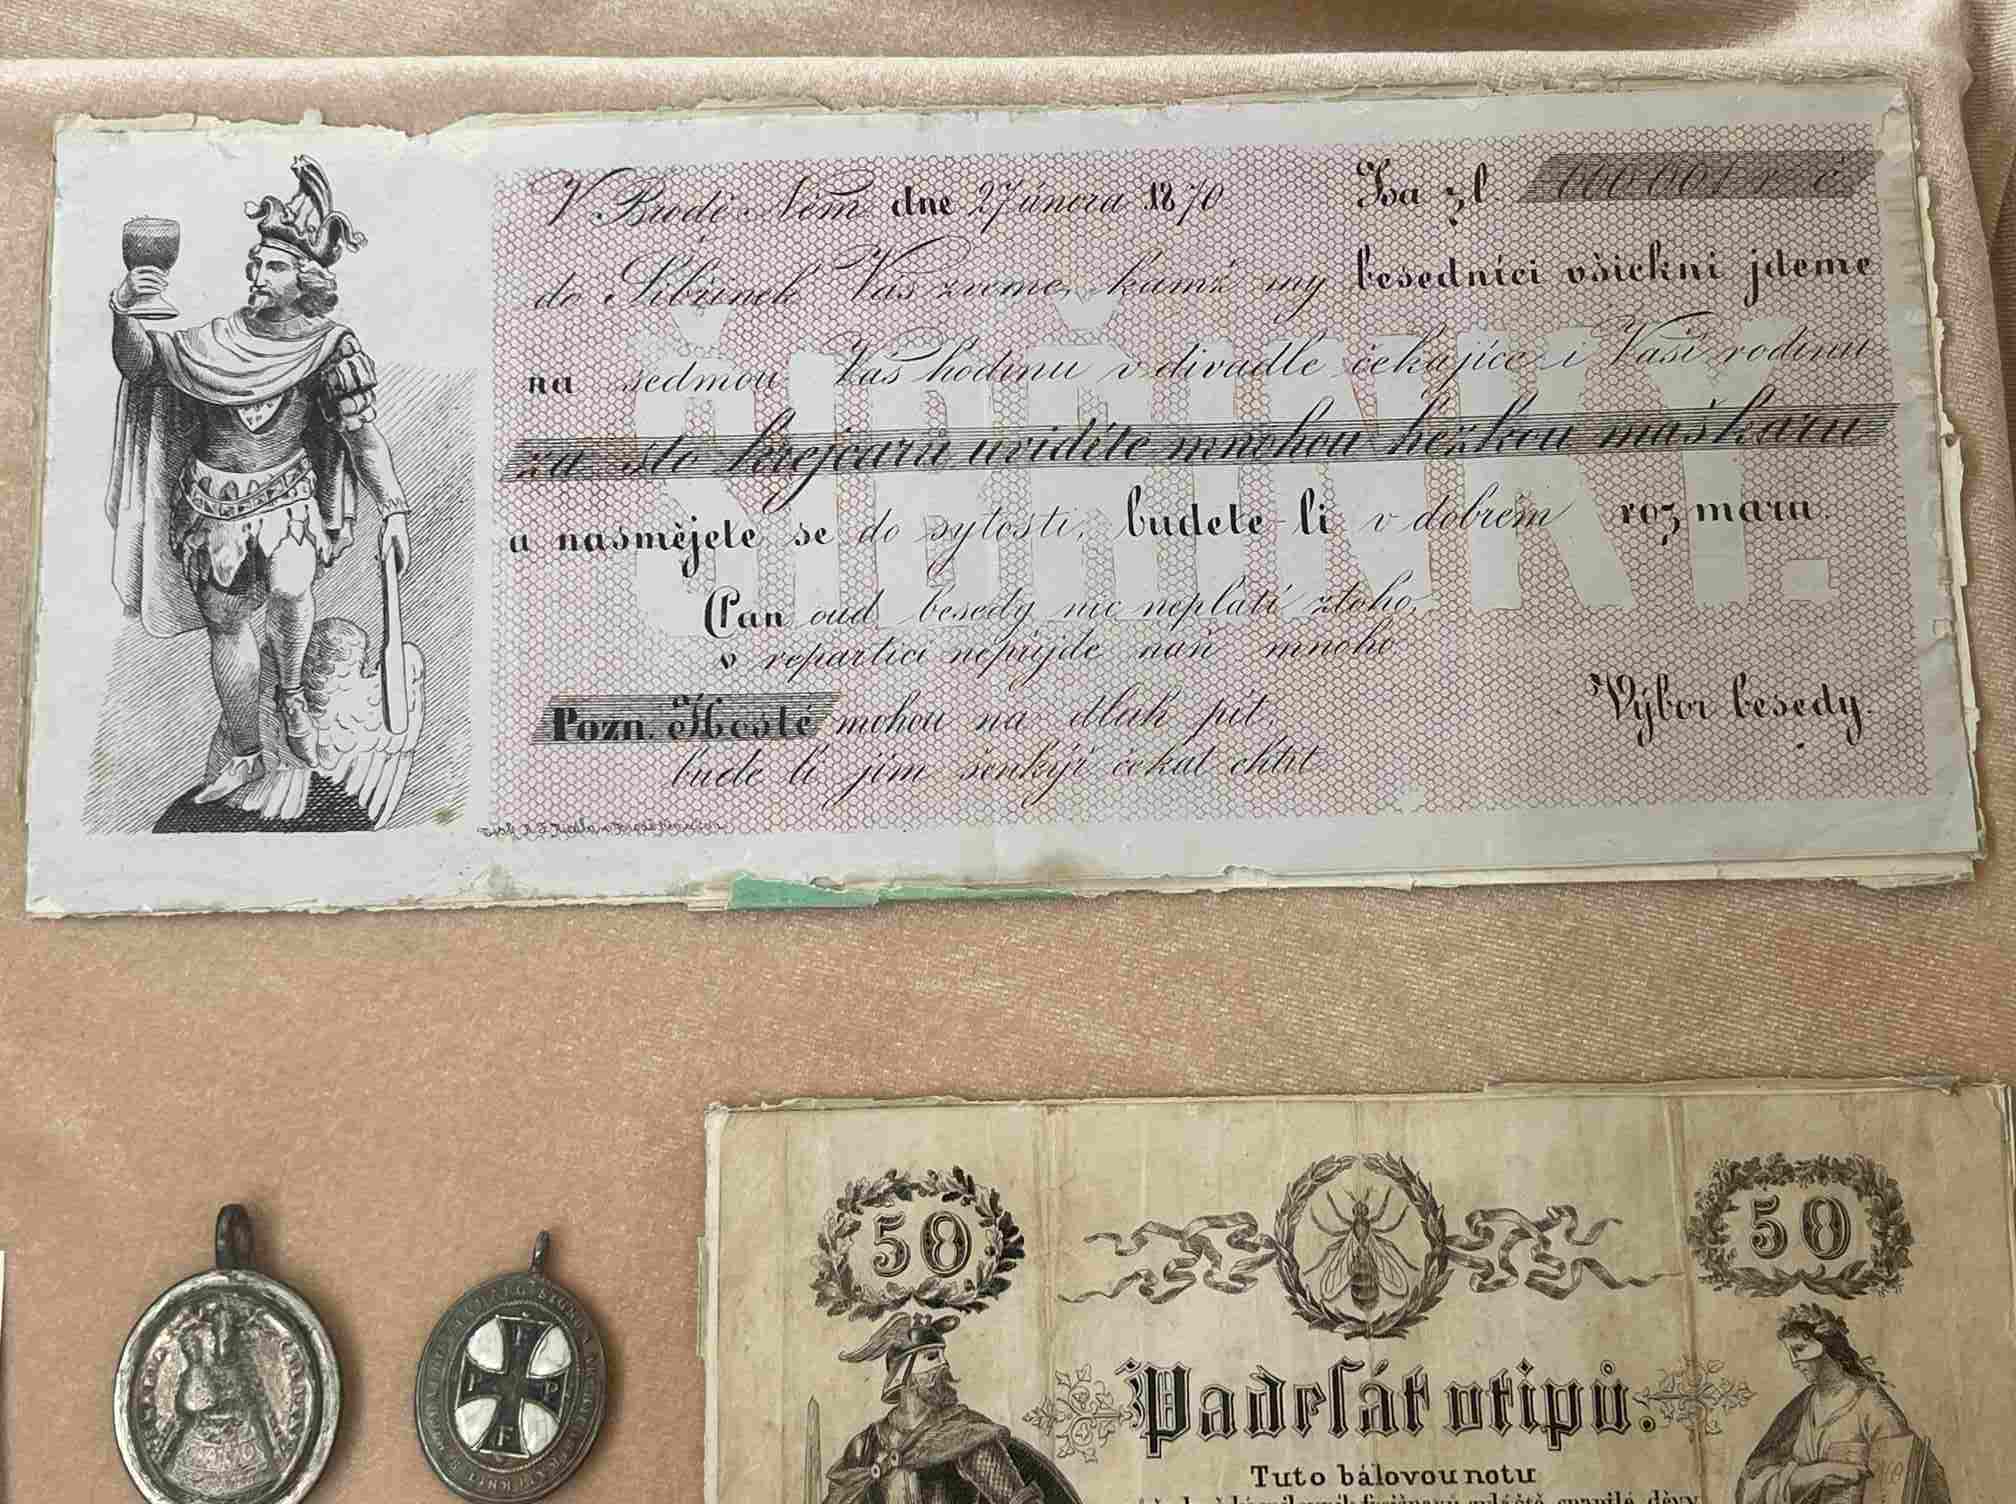 V Brodě Něm dne 27 února 1870 Za zl. 000.001 r. č.
do Šibřinek Vás zveme, kamž my besedníci všickni jdeme
na sedmou Vás hodinu v divadle čekajíce i Vaši rodinu
za sto krejcarů uvidíte mnohou hezkou maškaru
a nasmějete se do sytosti, budete-li v dobrém rozmaru.
ŠIBŘINKY.
(Pan oud besedy nic neplatí ztoho,
v repartici nepřijde naň mnoho
Výbor besedy.
Pozn. Hosté mohou na dluh pít,
bude li jim šenkýř čekat chtít
50 50
Padesát vtipů.
Tuto bálovou notu
I P F